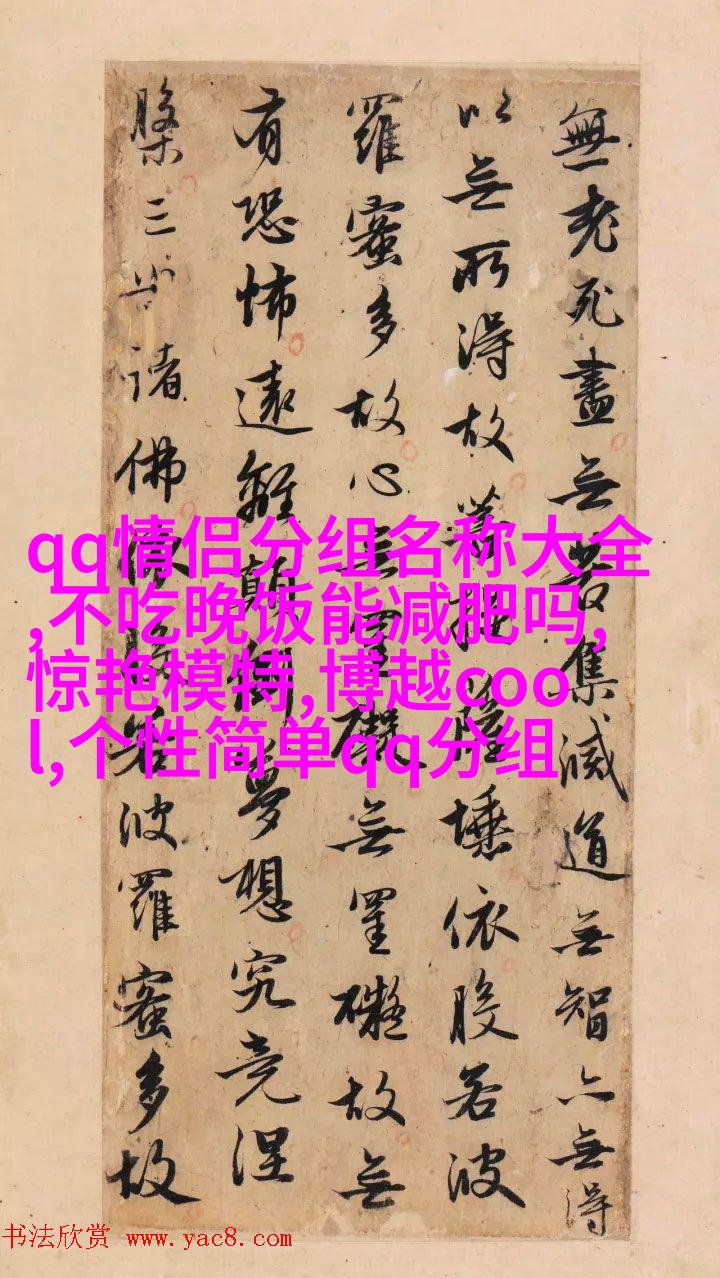 無老死盡无苦集滅道无智亦无得
以无所得故菩提薩埵依般若波
羅蜜多故心无罣礙无罣礙故无
有恐怖遠離顛倒夢想究竟涅
槃三世諸佛依般若波羅蜜多故
qq情侣分组名称大全
,不吃晚饭能减肥吗,
惊艳模特,博越coo
l,个性简单qq分组
书法欣赏 www.yac8.com